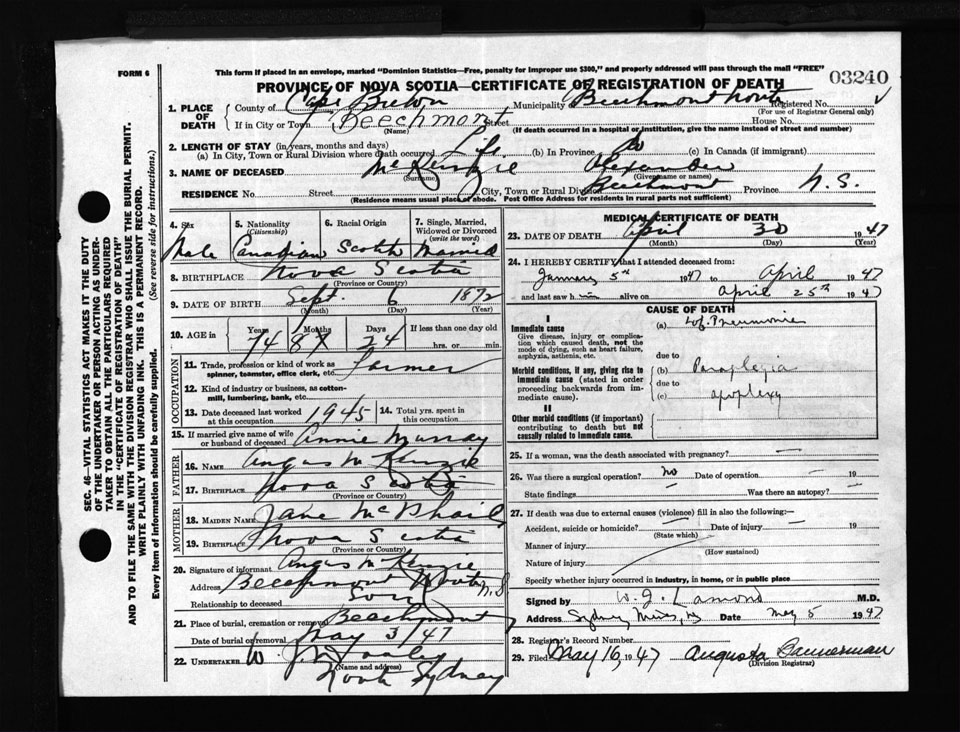 FORM 6
This form if placed in an envelope, marked "Dominion Statistics—Free, penalty for improper use $300," and properly addressed will pass through the mail "FREE"
03240
PROVINCE OF NOVA SCOTIA—CERTIFICATE OF REGISTRATION OF DEATH
1. PLACE OF DEATH
County of Cape Breton Municipality of Beechmont North Registered No.
(For use of Registrar General only)
If in City or Town Beechmont Street House No.
(Name) (If death occurred in a hospital or institution, give the name instead of street and number)
2. LENGTH OF STAY (in years, months and days)
(a) In City, Town or Rural Division where death occurred Life (b) In Province (c) In Canada (if immigrant)
3. NAME OF DECEASED McKenzie Alexander
(Surname) (Given name or names)
RESIDENCE No. Street City, Town or Rural Division Beechmont Province N.S.
(Residence means usual place of abode. Post Office Address for residents in rural parts not sufficient)
4. Sex 5. Nationality (Citizenship) 6. Racial Origin 7. Single, Married, Widowed or Divorced (write the word)
Male Canadian Scotch Married
8. BIRTHPLACE Nova Scotia
(Province or Country)
9. DATE OF BIRTH Sept. 6 1872
(Month) (Day) (Year)
10. AGE in Years Months Days If less than one day old
74 24 hrs. or min.
OCCUPATION
11. Trade, profession or kind of work as spinner, teamster, office clerk, etc. Farmer
12. Kind of industry or business, as cotton-mill, lumbering, bank, etc.
13. Date deceased last worked at this occupation 1945 14. Total yrs. spent in this occupation
15. If married give name of wife or husband of deceased Annie Murray
FATHER
16. NAME Angus McKenzie
17. BIRTHPLACE Nova Scotia
(Province or Country)
MOTHER
18. MAIDEN NAME Jane McPhail
19. BIRTHPLACE Nova Scotia
(Province or Country)
20. Signature of informant Angus McKenzie
Address Beechmont North N.S
Relationship to deceased Son
21. Place of burial, cremation or removal Beechmont
Date of burial or removal May 3/47
22. UNDERTAKER W. J.
(Name and address)
North Sydney
MEDICAL CERTIFICATE OF DEATH
23. DATE OF DEATH April 30 1947
(Month) (Day) (Year)
24. I HEREBY CERTIFY that I attended deceased from:
January 5th 1947 to April 1947
and last saw him alive on April 25th 1947
CAUSE OF DEATH
I
Immediate cause (a) Pneumonia
Give disease, injury or complication which caused death, not the mode of dying, such as heart failure, asphyxia, asthenia, etc.
due to
Morbid conditions, if any, giving rise to immediate cause (stated in order proceeding backwards from immediate cause). (b) Paraplegia
due to
(c) apoplexy
II
Other morbid conditions (if important) contributing to death but not causally related to immediate cause.
25. If a woman, was the death associated with pregnancy? —
26. Was there a surgical operation? no Date of operation — 19
State findings — Was there an autopsy? —
27. If death was due to external causes (violence) fill in also the following:—
Accident, suicide or homicide? — Date of injury — 19
(State which)
Manner of injury
(How sustained)
Nature of injury
Specify whether injury occurred in industry, in home, or in public place
Signed by W. J. Lamond M.D.
Address Sydney Mines, NS Date May 5 1947
28. Registrar's Record Number
29. Filed May 16, 1947 Augusta Bannerman
(Division Registrar)
SEC. 46—VITAL STATISTICS ACT MAKES IT THE DUTY
OF THE UNDERTAKER OR PERSON ACTING AS UNDER-
TAKER TO OBTAIN ALL THE PARTICULARS REQUIRED
IN THE "CERTIFICATE OF REGISTRATION OF DEATH"
AND TO FILE THE SAME WITH THE DIVISION REGISTRAR WHO SHALL ISSUE THE BURIAL PERMIT.
WRITE PLAINLY WITH UNFADING INK. THIS IS A PERMANENT RECORD.
Every item of information should be carefully supplied. (See reverse side for instructions.)